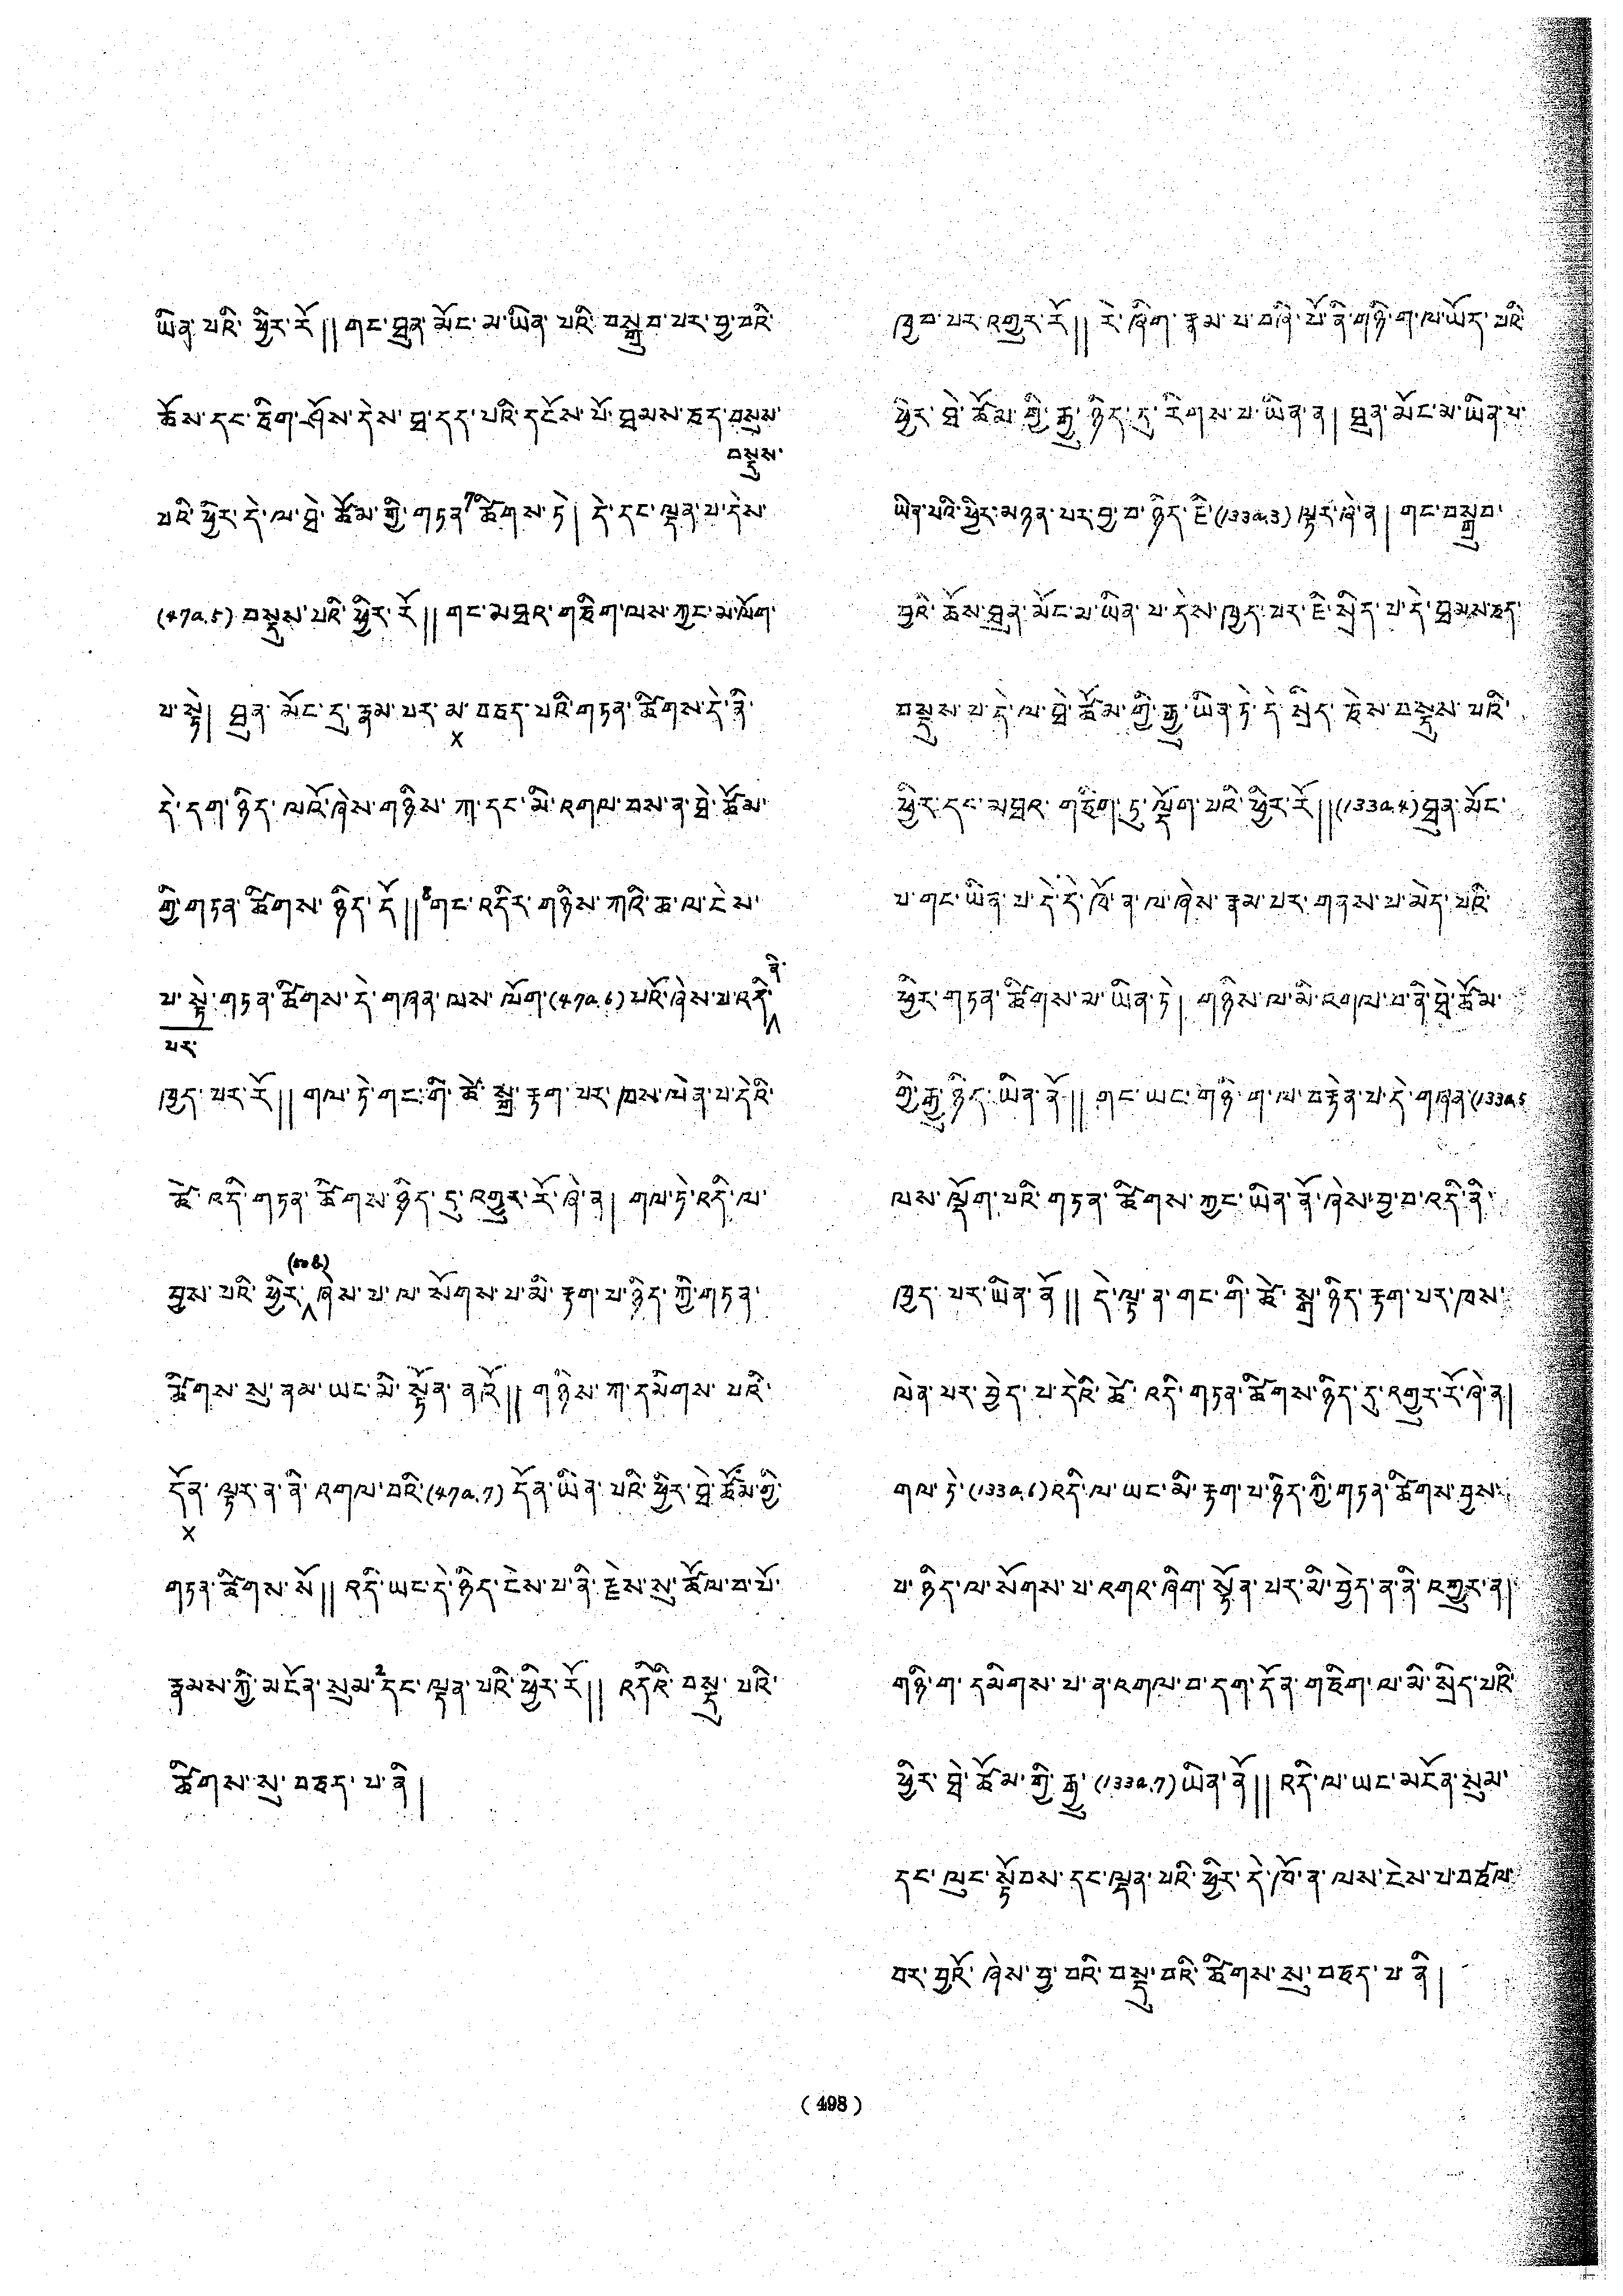 ཡིན་པའི་ཕྱིར་རོ།།གང་ཐུན་མོང་མ་ཡིན་པའི་བསྒྲུབ་པར་བྱ་བའི་
ཆོས་དང་ཅིག་ཤོས་དེས་ཐ་དད་པའི་དངོས་པོ་ཐམས་ཅད་བསྡུས་
བསྡུས་
པའི་ཕྱིར་དེ་ལ་ཐེ་ཚོམ་གྱི་གཏན་7ཚིགས་ཏེ།དེ་དང་ལྡན་པ་དེས་
(47a.5)བསྡུས་པའི་ཕྱིར་རོ།།གང་མཐའ་གཅིག་ལས་ཀྱང་མ་ལོག་
པ་སྟེ།ཐུན་མོང་དུ་རྣམ་པར་མ་བཅད་པའི་གཏན་ཚིགས་དེ་ནི་
x
དེ་དག་ཉིད་ལའོ་ཞེས་གཉིས་ཀ་དང་མི་འགལ་བས་ན་ཐེ་ཚོམ་
གྱི་གཏན་ཚིགས་ཉིད་དོ།།8གང་འདིར་གཉིས་ཀའི་ཆ་ལ་ངེས་
ནི་
པ་སྟེ་གཏན་ཚིགས་དེ་གཞན་ལས་ལོག་(47a.6)པའོ་ཞེས་པ་འདི་
པར་
ཁྱད་པར་རོ།།གལ་ཏེ་གང་གི་ཚེ་སྒྲ་རྟག་པར་ཁས་ལེན་པ་དེའི་
ཚེ་འདི་གཏན་ཚིགས་ཉིད་དུ་འགྱུར་རོ་ཞེ་ན།གལ་ཏེ་འདི་ལ་
བྱས་པའི་ཕྱིར་ཞེས་པ་ལ་སོགས་པ་མི་རྟག་པ་ཉིད་ཀྱི་གཏན་
ཚིགས་སུ་ནམ་ཡང་མི་སྟོན་ནའོ།།གཉིས་ཀ་དམིགས་པའི་
དོན་ལྟར་ན་ནི་འགལ་བའི་(47a.7)དོན་ཡིན་པའི་ཕྱིར་ཐེ་ཚོམ་གྱི་
x
གཏན་ཚིགས་སོ།།འདི་ཡང་དེ་ཉིད་ངེས་པ་ནི་རྗེས་སུ་ཚོལ་བ་པོ་
རྣམས་ཀྱི་མངོན་སུམ་2དང་ལྡན་པའི་ཕྱིར་རོ།།འདིའི་བསྡུ་པའི་
ཚིགས་སུ་བཅད་པ་ནི།
ཁྱབ་པར་འགྱུར་རོ།།རེ་ཞིག་རྣམ་པ་བཞི་པོ་ནི་གཉི་ག་ལ་ཡོད་པའི་
ཕྱིར་ཐེ་ཚོམ་གྱི་རྒྱུ་ཉིད་དུ་རིགས་པ་ཡིན་ན།ཐུན་མོང་མ་ཡིན་པ་
ཡིན་པའི་ཕྱིར་མཉན་པར་བྱ་བ་ཉིད་ཇི་(133a.3)ལྟར་ཞེ་ན།གང་བསྒྲུབ་
བྱའི་ཆོས་ཐུན་མོང་མ་ཡིན་པ་དེས་ཁྱད་པར་ཇི་སྲིད་པ་དེ་ཐམས་ཅད་
བསྡུས་པ་དེ་ལ་ཐེ་ཚོམ་གྱི་རྒྱུ་ཡིན་ཏེ་དེ་སྲིད་ཅེས་བསྡུས་པའི་
ཕྱིར་དང་མཐའ་གཅིག་ཏུ་ལྡོག་པའི་ཕྱིར་རོ།།(133a.4)ཐུན་མོང་
པ་གང་ཡིན་པ་དེ་དེ་ཁོ་ན་ལ་ཞེས་རྣམ་པར་གནས་པ་མེད་པའི་
ཕྱིར་གཏན་ཚིགས་མ་ཡིན་ཏེ།གཉིས་ལ་མི་འགལ་བ་ནི་ཐེ་ཚོམ་
གྱི་རྒྱུ་ཉིད་ཡིན་ནོ།།གང་ཡང་གཉི་ག་ལ་བརྟེན་པ་དེ་གཞན་(133a.5
ལས་ལྡོག་པའི་གཏན་ཚིགས་ཀྱང་ཡིན་ནོ་ཞེས་བྱ་བ་འདི་ནི་
ཁྱད་པར་ཡིན་ནོ།།དེ་ལྟ་ན་གང་གི་ཚེ་སྒྲ་ཉིད་རྟག་པར་ཁས་
ལེན་པར་བྱེད་པ་དེའི་ཚེ་འདི་གཏན་ཚིགས་ཉིད་དུ་འགྱུར་རོ་ཞེ་ན།
གལ་ཏེ་(133a.6)འདི་ལ་ཡང་མི་རྟག་པ་ཉིད་ཀྱི་གཏན་ཚིགས་བྱས་
པ་ཉིད་ལ་སོགས་པ་འགའ་ཞིག་སྟོན་པར་མི་བྱེད་ན་ནི་འགྱུར་ན།
གཉི་ག་དམིགས་པ་ན་འགལ་བ་དག་དོན་གཅིག་ལ་མི་སྲིད་པའི་
ཕྱིར་ཐེ་ཚོམ་གྱི་རྒྱུ་(133a.7)ཡིན་ནོ།།འདི་ལ་ཡང་མངོན་སུམ་
དང་ལུང་སྟོབས་དང་ལྡན་པའི་ཕྱིར་དེ་ཁོ་ན་ལས་ངེས་པ་བཙལ་
བར་བྱའོ་ཞེས་བྱ་བའི་བསྡུ་བའི་ཚིགས་སུ་བཅད་པ་ནི།
(498)